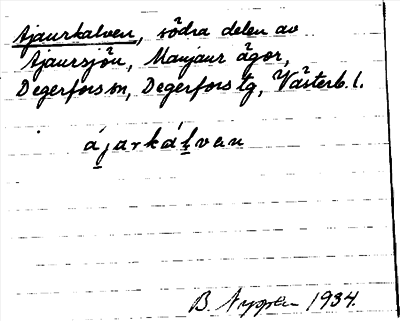 Ajaurkalven, södra delen av
Ajaursjön, Manjaur ägor,
Degerfors sn, Degerfors tg, Västerb. l.
ájarkálvan
B. 1934.